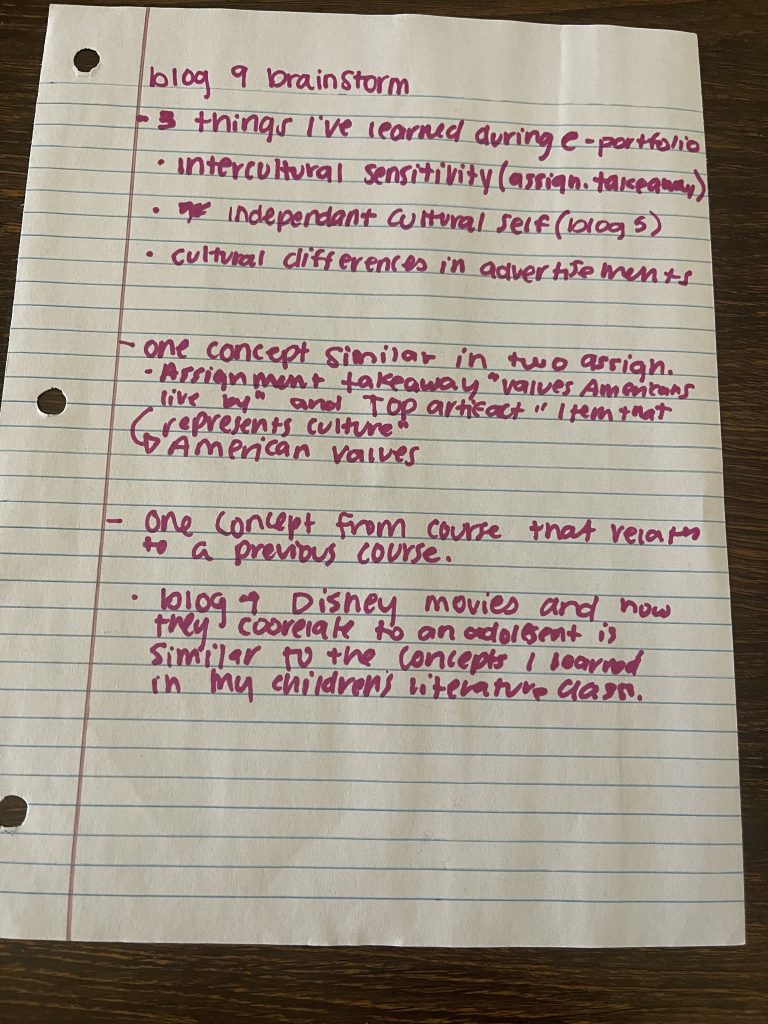 blog 9 brainstorm
- 3 things I've learned during e-portfolio
• intercultural sensitivity (assign. takeaway)
• independant cultural self (blog 5)
• cultural differences in advertisements
- one concept similar in two assign.
• Assignment takeaway "values Americans
live by" and Top artifact "item that
represents culture"
↳ American values
- one concept from course that relates
to a previous course.
• blog 9 Disney movies and how
they coorelate to an adolesent is
similar to the concepts I learned
in my children's literature class.